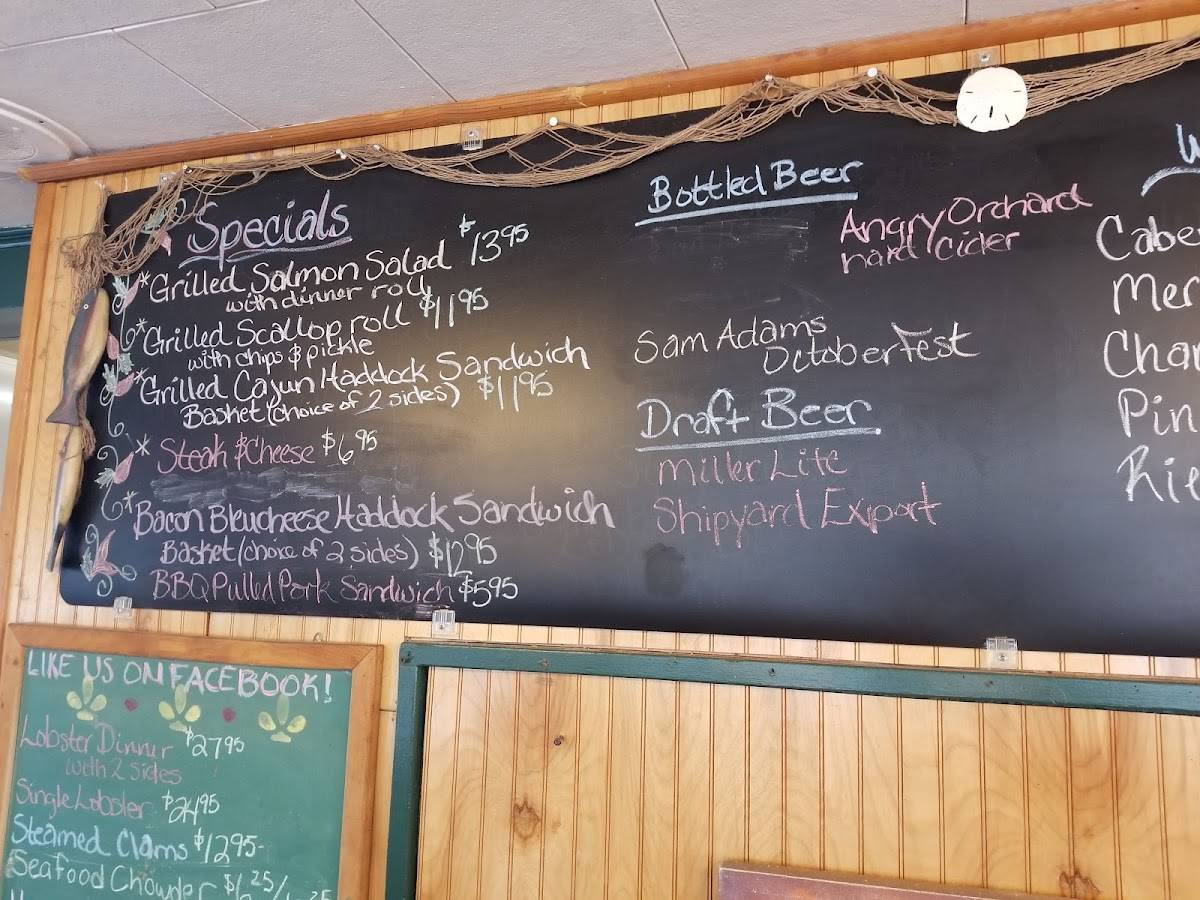 Specials
*Grilled Salmon Salad $13.95
with dinner roll
*Grilled Scallop roll $11.95
with chips & pickle
*Grilled Cajun Haddock Sandwich
Basket (choice of 2 sides) $11.95
* Steak & Cheese $6.95
* Bacon Bleucheese Haddock Sandwich
Basket (choice of 2 sides) $12.95
BBQ Pulled Pork Sandwich $5.95
Bottled Beer
Angry Orchard
hard Cider
Sam Adams
Octoberfest
Draft Beer
Miller Lite
Shipyard Export
W
Cabe
Mer
Char
Pin
Rie
LIKE US ON FACEBOOK!
Lobster Dinner $27.95
with 2 sides
Single Lobster $24.95
Steamed Clams $12.95
Seafood Chowder $6.25/